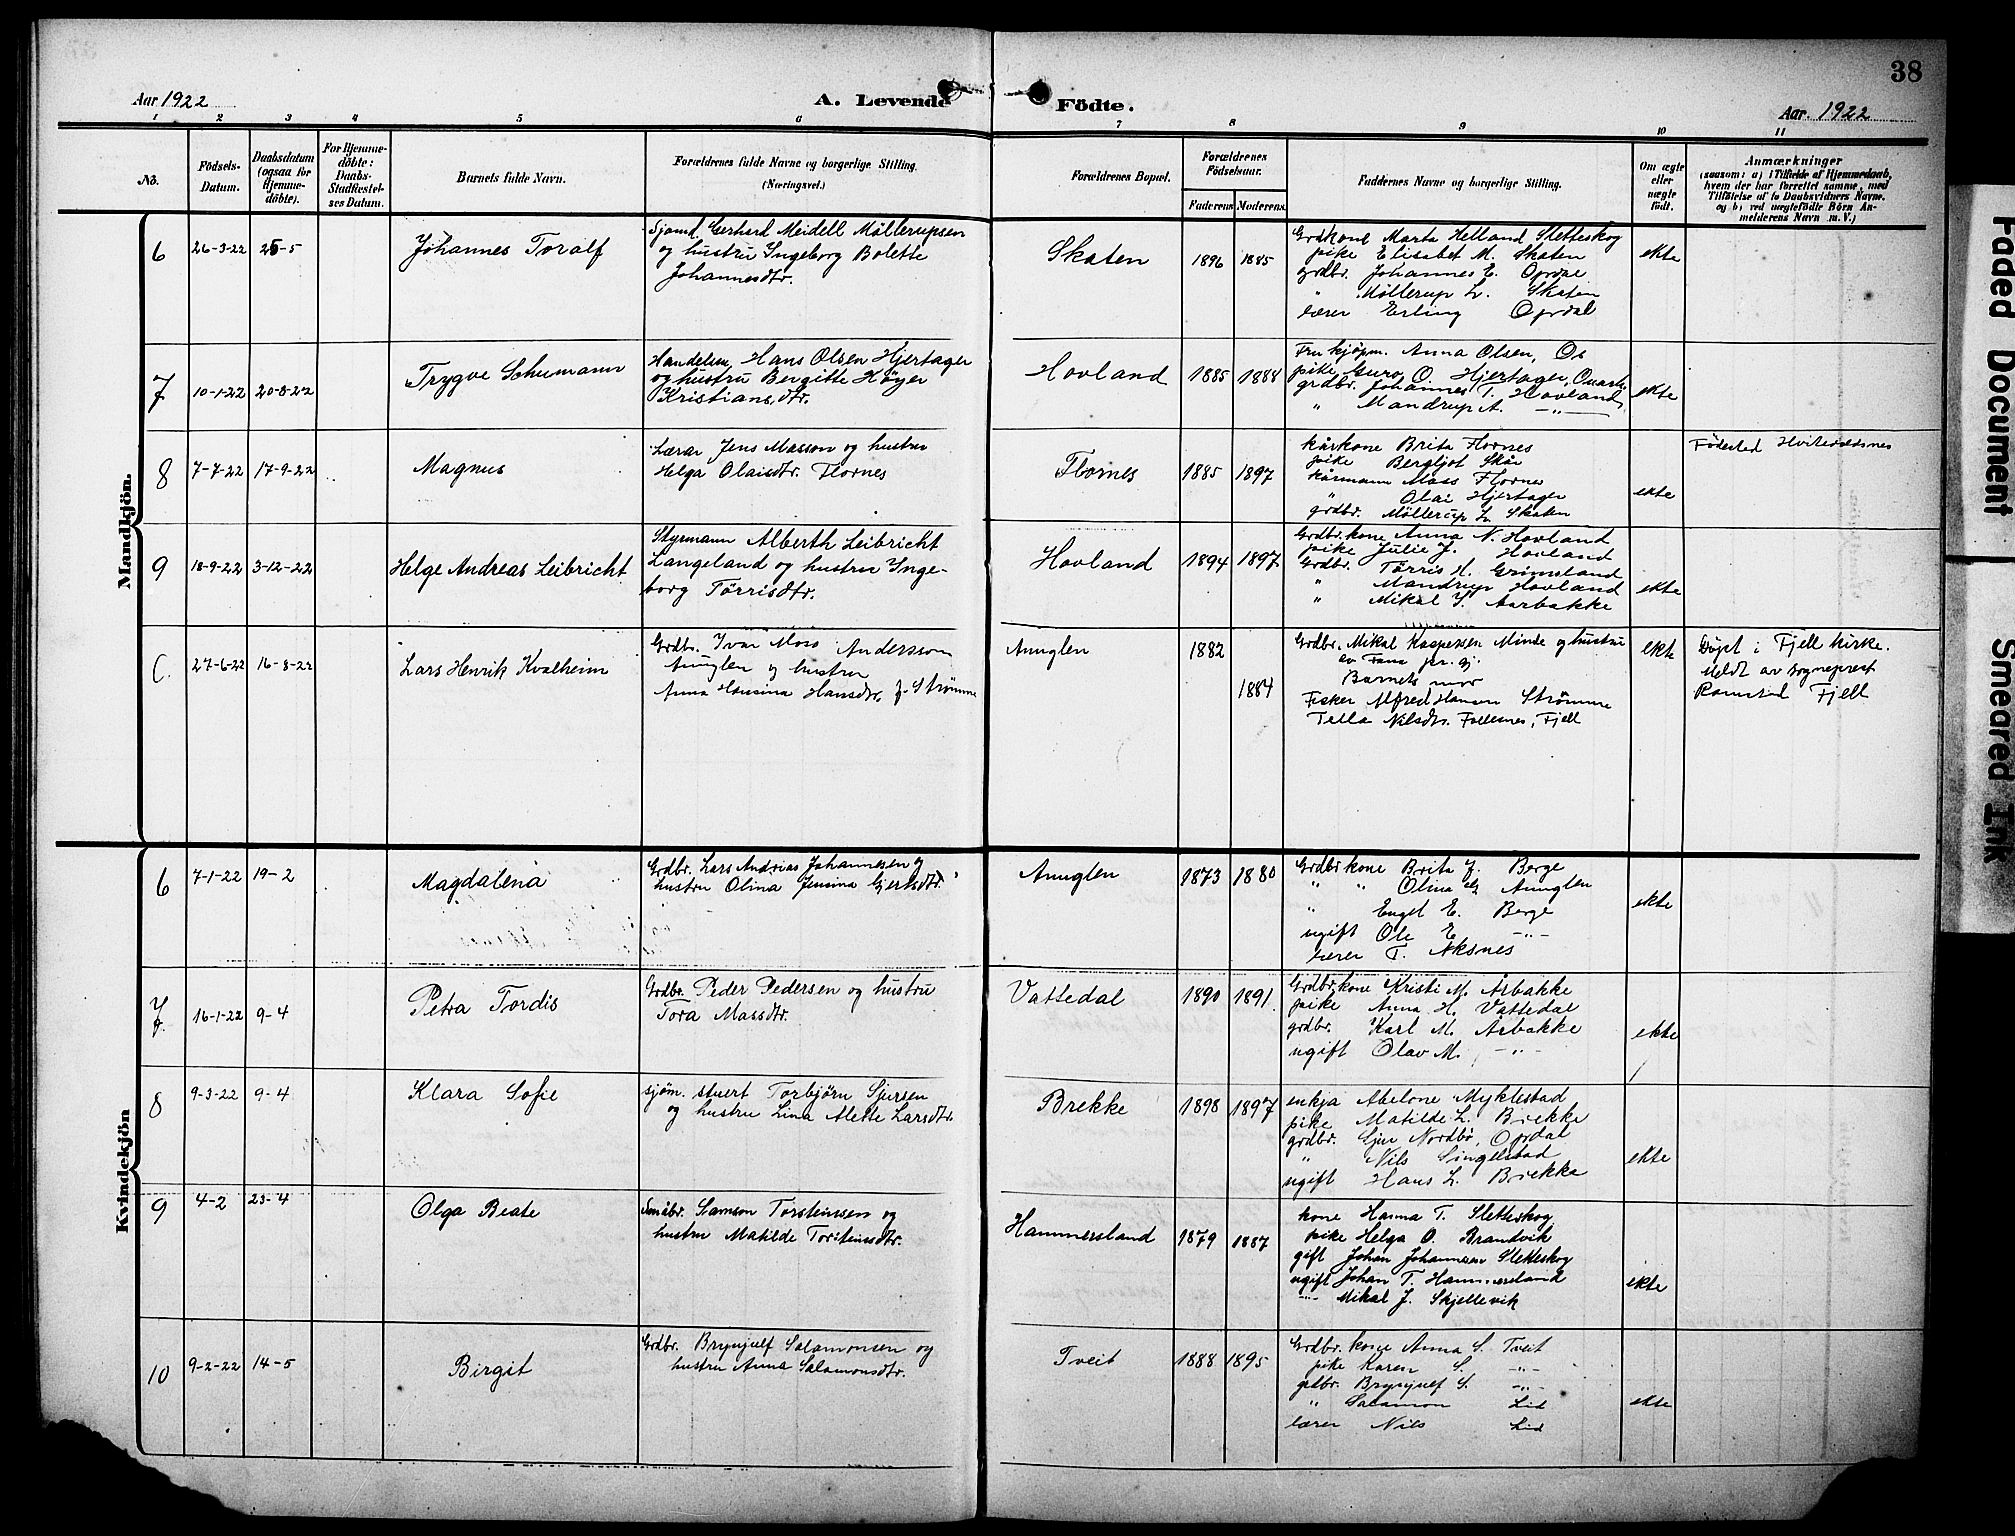 38
Aar 1922
A. Levende Födte.
Aar 1922
1 2 3 4 5 6 7 8 9 10 11
No.
Födsels-
Datum.
Daabsdatum
(ogsaa for
Hjemme-
döbte).
For Hjemme-
döbte:
Daabs-
Stadfæstel-
ses Datum.
Barnets fulde Navn.
Forældrenes fulde Navne og borgerlige Stilling.
(Næringsvei.)
Forældrenes Bopæl.
Forældrenes
Födselsaar.
Faderens. Moderens.
Faddernes Navne og borgerlige Stilling.
Om ægte
eller
uægte
födt.
Anmærkninger
(saasom: a) i Tilfælde af Hjemmedaab,
hvem der har forrettet samme, med
Tilföielse af to Daabsvidners Navne,
og b) ved uægtefödte Börn An-
melderens Navn m. V.)
Mandkjön.
6 26-3-22 25-5
Johannes Toralf
Sjømd. Gerhard Meidell Møllerupsen
og hustru Ingeborg Bolette
Johannesdtr.
Skaten
1896 1885
Grdkone Marta Helland Sletteskog
pike Elisabet M. Skaten
grdbr. Johannes E. Opdal
" Møllerup L. Skaten
lærer Erling Opdal
ekte
7 10-1-22 20-8-22
Trygve Schumann
Handelsm. Hans Olsen Hjertager
og hustru Bergitte Høyer
Kristiansdtr.
Hovland
1885 1888
Fru kjøpm. Anna Olsen, Os
pike Guro O. Hjertager,
grdbr. Johannes T. Hovland
" Mandrup A. -"-
ekte
8 7-7-22 17-9-22
Magnus
Lærar Jens Masson og hustru
Helga Olaisdtr. Flornes
Flornes
1885 1897
kårkone Brita Flornes
pike Bergljot Skår
kårmann Mass Flornes
" Olai Hjertager
grdbr. Møllerup L. Skaten
ekte
Fødested Hviteveldsnes
9 18-9-22 3-12-22
Helge Andreas Leibricht
Styrmann Alberth Leibricht
Langeland og hustru Inge-
borg Tørrisdtr.
Hovland
1894 1897
Grdbr.kone Anna N. Hovland
pike Julie J. Hovland
Grdbr. Tørris H. Grimsland
" Mandrup Hovland
" Mikal I. Aarbakke
ekte
C. 27-6-22 16-8-22
Lars Henrik Kvalheim
Grdbr. Ivar Mons Anderssom
Anuglen og hustru
Anna Hansina Hansdtr. f. Strömme
Anuglen
1882
1884
Grdbr. Mikal Kaspersen Minde og hustru
av Fana pr. gj.
Barnets mor
Fisker Alfred Hansen Strömme
Tella Nilsdtr. Follesnes, Fjell
ekte
Døpt i Fjell kirke.
Meldt av sogneprest
Ramstad Fjell
Kvindekjön
6 7-1-22 19-2
Magdalena
Grdbr. Lars Andreas Johannesen og
hustru Olina Jensina Gjertsdtr.
Anuglen
1873 1880
Grdbrkone Brita J. Berge
" " Olina G. Anuglen
" Engel E. Berge
ugift Ole E. -"-
lærer T. Aksnes
ekte
7. 16-1-22 9-4
Petra Tordis
Grdbr. Peder Pedersen og hustru
Tora Massdtr.
Vattedal
1890 1891.
Grdbrkone Kristi M. Årbakke
pike Anna H. Vattedal
grdbr. Karl M. Årbakke
ugift Olav M. -"-
ekte
8 9-3-22 9-4
Klara Sofie
sjøm. stuert Torbjørn Sjursen
og hustru Lina Alette Larsdtr.
Brekke
1898 1897
enkja Abelone Myklestad
pike Matilde L. Brekke
grdbr. Gjer Nordbø, Opdal
" Nils Singelstad
ugift Hans L. Brekke
ekte
9 4-2 23-4
Olga Beate
Småbr. Samson Torsteinssen og
hustru Matilde Torsteinsdtr.
Hammersland
1879 1887
kone Hanna T. Sletteskog
pike Helga O. Brandvik
gift Johan Johannesen Sletteskog
ugift Johan T. Hammersland
-"- Mikal J. Skjellevik
ekte
10 9-2-22 14-5
Birgit
Grdbr. Brynjulf Salamonsen og
hustru Anna Salamonsdtr.
Tveit
1888 1895
Grdbr.kone Anna S. Tveit
pike Karen S. -"-
grdbr. Brynjulf S. -"-
" Salamon Lid
lærer Nils Lid
ekte
Faded Document
Smeared Ink